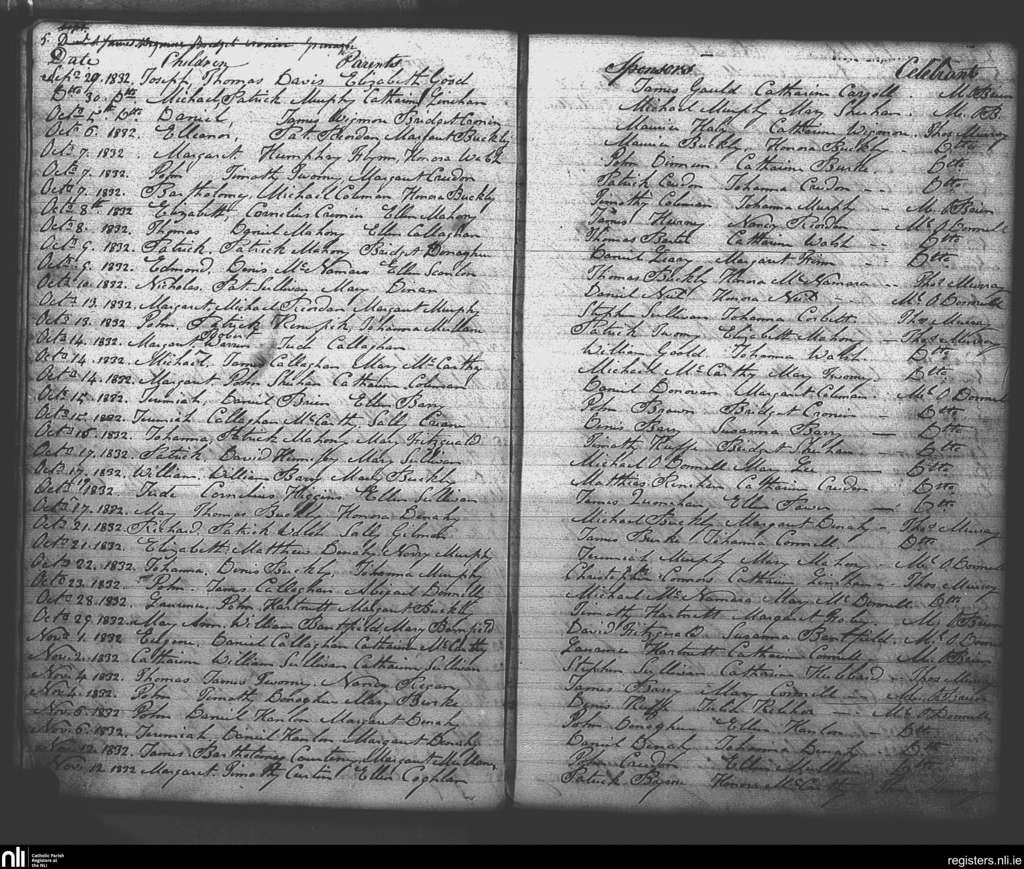 Sept.
5. Danl. James Wigmore Bridget Cronin
Date Children Parents
Sepr. 29. 1832. Joseph, Thomas Davis Elizabeth Goold
Dtto 30. Dtto Michael, Patrick Murphy Catharine Linehan
Octr. 5th Dtto Daniel, James Wigmore Bridget Cronin
Octr. 6. 1832. Elleanor, Pat Riordan Margaret Buckly
Octr. 7. 1832. Margaret. Humphry Flynn, Honora Walsh
Octr. 7. 1832. John Timoth Twomy, Margaret Creedon
Octr. 7. 1832. Bartholomew, Michael Coleman Honora Buckly
Octr. 8th 1832 Elizabeth, Cornelius Ellen Mahony
Octr. 8. 1832. Thomas Daniel Mahony Ellen Callaghan
Octr. 9. 1832. Patrick, Patrick Mahony Bridget Donaghue
Octr. 9. 1832. Edmond, Denis McNamara Ellen Scanlon
Octr. 10. 1832. Nicholas, Pat Sullivan Mary
Octr. 13. 1832. Margaret, Michael Riordan Margaret Murphy
Octr. 13. 1832 John, Patrick Johanna Mullane
Octr. 14. 1832. Margaret Robert Warren Jude Callaghan
Octr. 14. 1832. Michael, James Callaghan Mary McCarthy
Octr. 14. 1832. Margaret John Shehan Catharine Coleman
Octr. 15. 1832. Jeremiah, Daniel Brien Ellen Barry
Octr. 15. 1832. Jeremiah Callaghan McCarthy Sally
Octr. 15. 1832. Johanna, Patrick Mahony Mary Fitzgerald
Octr. 17. 1832. Patrick David Mary Sullivan
Octr. 17. 1832. William, William Barry Mary Buckly
Octr. 1832. Jude Cornelius Higgins Ellen Sullivan
Octr. 17. 1832. May Thomas Buckly Honora Denahy
Octr. 21. 1832. Richard, Patrick Walsh Sally Gilman
Octr. 21. 1832. Elizabeth, Matthew Denahy Norry Murphy
Octr. 22. 1832. Johanna, Denis Buckly, Johanna Murphy
Octr. 23. 1832. John. James Callaghan Abigail Donnell
Octr. 28. 1832. Laurence, John Hartnett Margaret Buckly
Octr. 29. 1832. May Ann, William Bantfield Mary Bamfield
Novr. 1. 1832 Eugene, Daniel Callaghan Catharine McCarthy
Novr. 2. 1832 Catharine William Sullivan Catharine Sullivan
Novr. 4. 1832. Thomas James Twomy. Nandy Regan
Nov. 4. 1832. John Timoth Donaghue Mary Burke
Nov. 5. 1832. John Daniel Hanlon Margaret Denahy
Nov. 6. 1832. Jeremiah Daniel Hanlon Margaret Denahy
Nov. 12. 1832. James Bartholomew Courteney Margaret Mullane
Nov. 12. 1832 Margaret Timothy Ellen Coghlan
Sponsors Celebrant
James Gould Catharine Carroll. M. OBrien
Michael Murphy Mary Shehan. M. O.B.
Maurice Catharine Wigmore Thos. Murray
Maurice Buckly Honora Buckly - Dtto
John Catharine Burke Dtto
Patrick Creedon Johanna Creedon - Dtto
Timothy Coleman Johanna Murphy - M. O Brien
James Nandy Riordan Mr. O Donnell
Thomas Catharine Walsh - Dtto
Daniel Leary Margaret Dtto
Thomas Buckly Honora McNamara Thos. Murray
Daniel Honora - Mr. O Donnell
Stephen Sullivan Johanna Corbett Thos. Murray
Patrick Twomy Elizabeth Mahony - Thos. Murray
William Goold Johanna Walsh Dtto
Michael McCarthy Mary Twomy. Dtto
Daniel Donovan Margaret Coleman. Mr. O Donnell
John Brown Bridget Cronin Dtto
Denis Barry Susanna Barry Dtto
Timoth Keeffe Bridget Shehan Dtto
Michael O Donnell Mary Lee Dtto
Matthias Linehan Catharine Creedon Dtto
James Ellen Dtto
Michael Buckly Margaret Denahy. Thos. Murray
James Burke Johanna Connell Dtto
Jeremiah Murphy Mary Mahony Mr. O Donnell
Christopher Connors Catharine Linehan. Thos. Murray
Michael McNamara Mary McDonnell. Dtto
Timoth Hartnett Margaret M. O Brien
David Fitzgerald Susanna Bantfield. Mr. O Donnell
Laurence Hartnett Catharine Connell M. O Brien
Stephen Sullivan Catharine Hubbard Thos. Murray
James Barry Mary Connell - M. O Brien
Denis Keeffe - Mr. O Donnell
John Donaghue Ellen Hanlon - Dtto
Daniel Denahy Johanna Denahy Dtto
John Creedon Ellen Mullane Dtto
Patrick Honora McCarthy Murray
nli Catholic Parish
Registers at
the NLI
registers.nli.ie